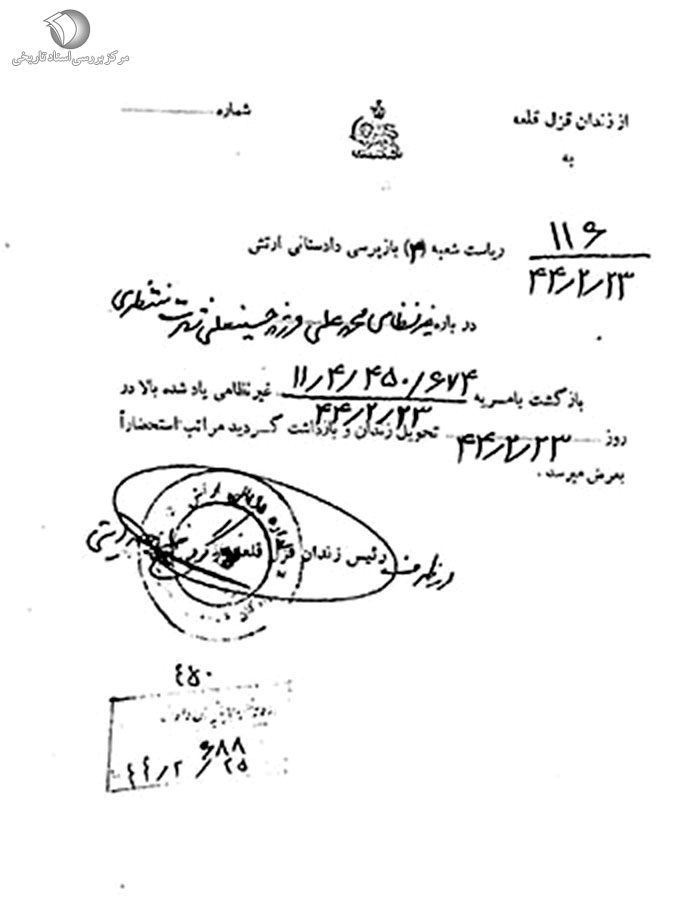 مرکز بررسی اسناد تاریخی
از زندان قزل قلعه
شماره
به
ریاست شعبه (۴) بازپرسی دادستانی ارتش
۱۱۶
۴۴/۲/۲۳
در باره غیرنظامی محمدعلی فرزند حسینعلی شهرت منتظری
بازگشت بامریه ۱۱/۴/۴۵۰/۶۷۴ غیرنظامی یاد شده بالا در
۴۴/۲/۲۳
روز ۴۴/۲/۲۳ تحویل زندان و بازداشت گردید مراتب استحضاراً
بعرض میرسد .
از طرف رئیس زندان قزل قلعه
۴۵۰
۶۸۸
۴۴/۲/۲۵